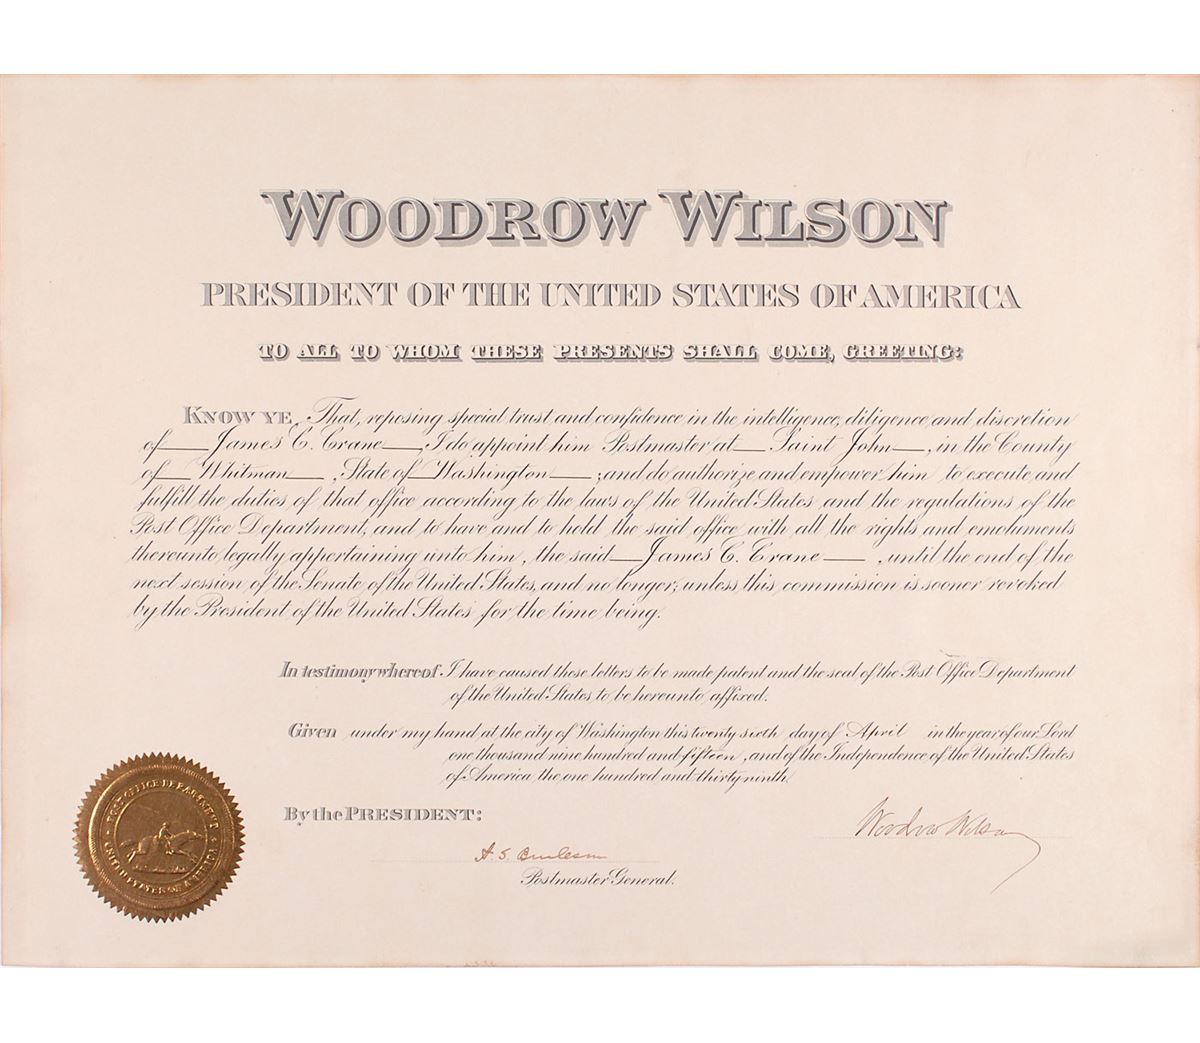 WOODROW WILSON
PRESIDENT OF THE UNITED STATES OF AMERICA
TO ALL TO WHOM THESE PRESENTS SHALL COME, GREETING:
KNOW YE, That, reposing special trust and confidence in the intelligence, diligence and discretion
of James C. Crane, I do appoint him Postmaster at Saint John, in the County
of Whitman, State of Washington; and do authorize and empower him to execute and
fulfill the duties of that office according to the laws of the United States and the regulations of the
Post Office Department, and to have and to hold the said office with all the rights and emoluments
thereunto legally appertaining unto him, the said James C. Crane, until the end of the
next session of the Senate of the United States, and no longer; unless this commission is sooner revoked
by the President of the United States for the time being.
In testimony whereof I have caused these letters to be made patent and the seal of the Post Office Department
of the United States to be hereunto affixed.
Given under my hand at the city of Washington this twenty sixth day of April in the year of our Lord
one thousand nine hundred and fifteen, and of the Independence of the United States
of America the one hundred and thirty ninth.
By the PRESIDENT:
Woodrow Wilson
A. S. Burleson
Postmaster General.
POST OFFICE DEPARTMENT
UNITED STATES OF AMERICA